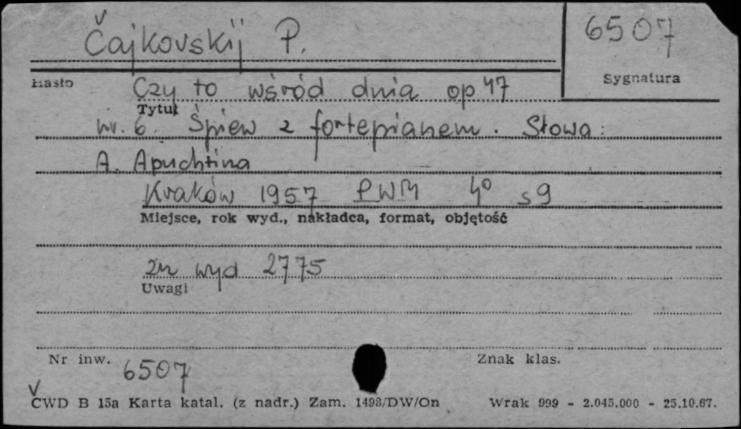 Čajkovskij P.
6507
Hasło
Sygnatura
Czy to wśród dnia op 47
Tytuł
nr. 6. Śpiew z fortepianem. Słowa:
A. Apuchtina
Kraków 1957 PWM 4° s 9
Miejsce, rok wyd., nakładca, format, objętość
zn wyd 2775
Uwagi
Nr inw. 6507
Znak klas.
CWD B 15a Karta katal. (z nadr.) Zam. 1493/DW/On Wrak 999 - 2.045.000 - 25.10.67.